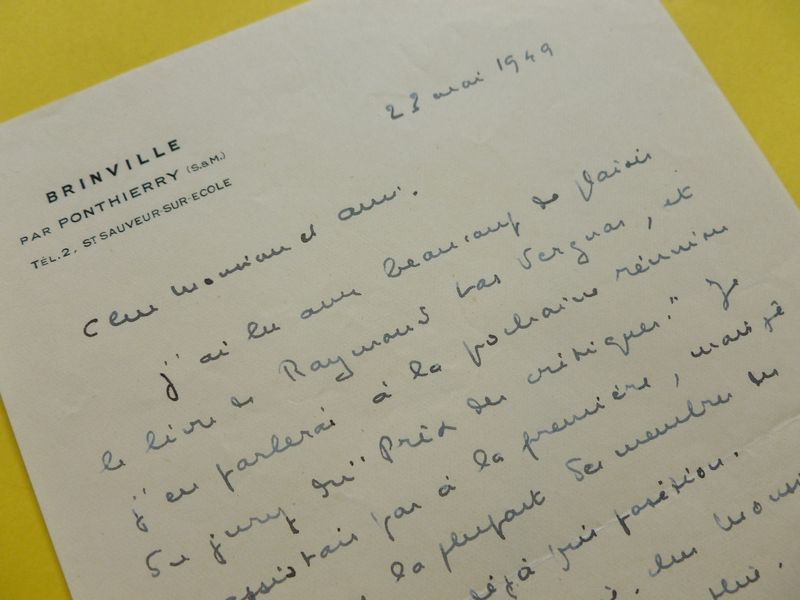 23 mai 1949
BRINVILLE
PAR PONTHIERRY (S.&M.)
TÉL. 2, ST SAUVEUR-SUR-ECOLE
Cher monsieur et ami.
j'ai lu avec beaucoup de plaisir
le livre de Raymond Las Vergnas, et
j'en parlerai à la prochaine réunion
du jury du "Prix des critiques." Je
assistais pas à la première, mais je
la plupart des membres du
déjà pris position.
cher Monsi